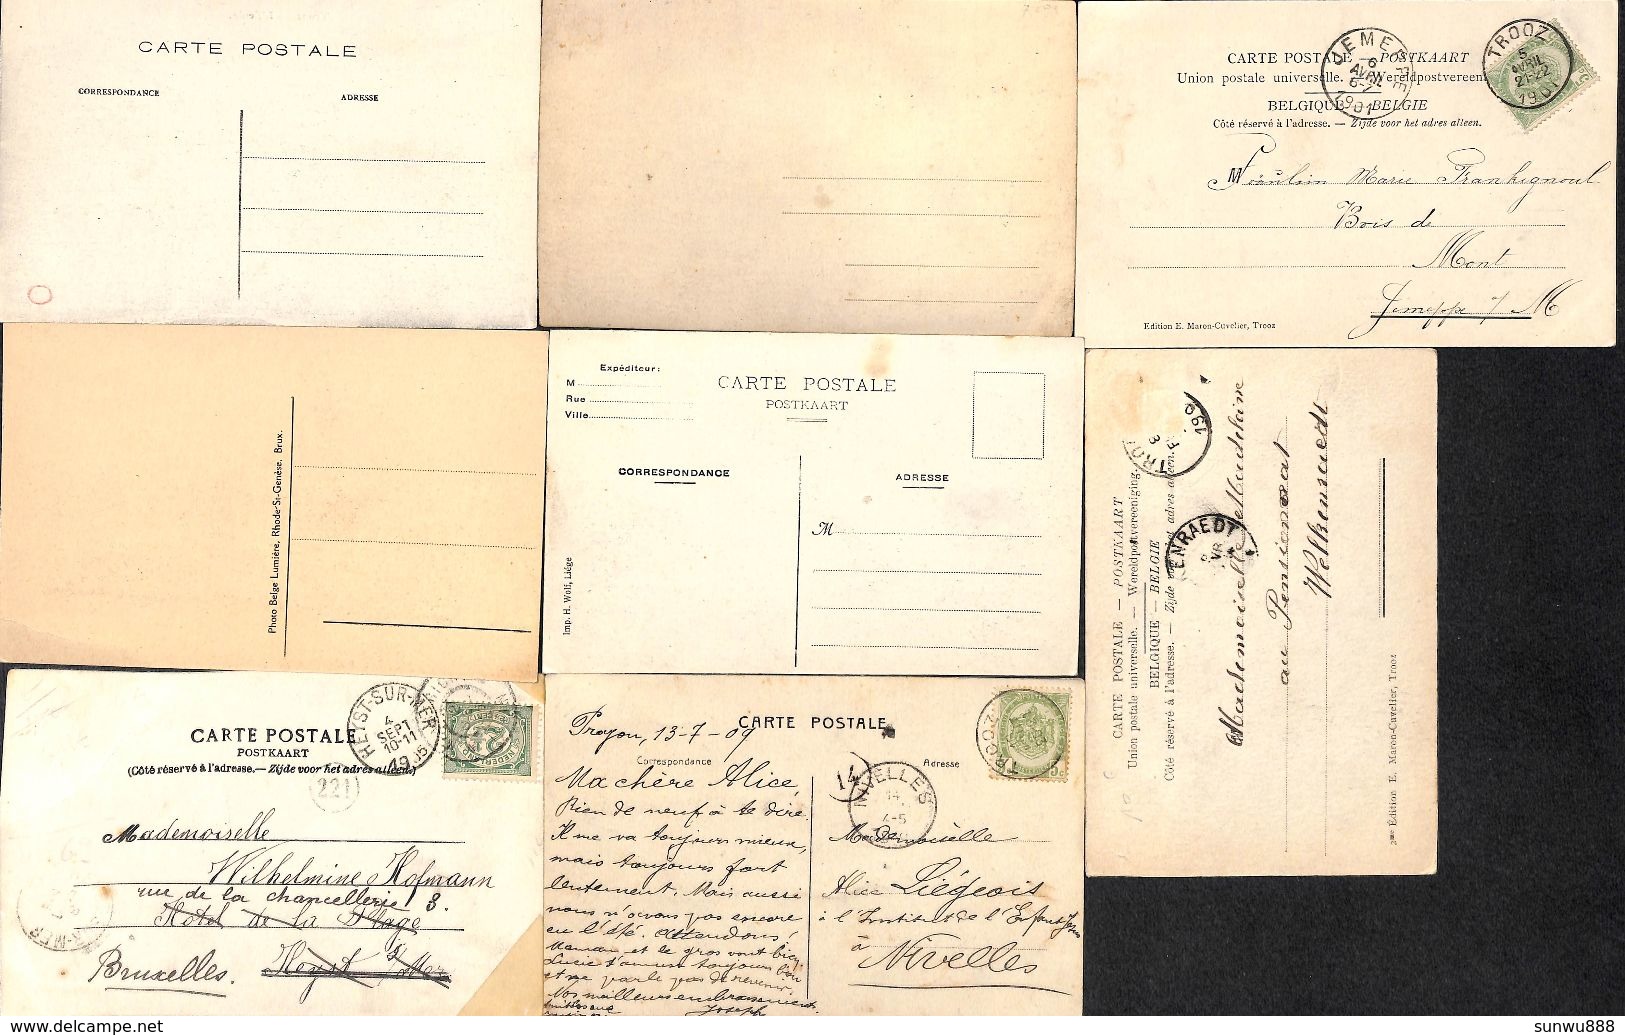 CARTE POSTALE
CORRESPONDANCE
ADRESSE
CARTE POSTALE — POSTKAART
Union postale universelle. — Wereldpostvereen
BELGIQUE BELGIE
Côté réservé à l'adresse. — Zijde voor het adres alleen.
JEMEPPE
6
AVRIL
6-7
1901
TROOZ
5
AVRIL
21-22
1901
Marie Frankignoul
Bois de
Mont
Jemeppe s/ M
Edition E. Maron-Cuvelier, Trooz
Photo Belge Lumière, Rhode-St-Genèse, Brux.
Expéditeur:
M
Rue
Ville
CARTE POSTALE
POSTKAART
CORRESPONDANCE
ADRESSE
M
Imp. H. Wolf, Liége
CARTE POSTALE — POSTKAART
Union postale universelle. — Wereldpostvereeniging.
BELGIQUE — BELGIE
Côté réservé à l'adresse. — Zijde voor het adres alleen.
TROO
ENRAEDT
Mademoiselle
au Pensionnat
Welkenraedt
2me Édition E. Maron-Cuvelier, Trooz
CARTE POSTALE
POSTKAART
(Côté réservé à l'adresse.— Zijde voor het adres alleen.)
HEIST-SUR-MER
4
SEPT
10-11
1905
221
Mademoiselle
Wilhelmine Hofmann
rue de la chancellerie 3.
Hôtel de la Plage
Heyst s/ Mer
Bruxelles.
CARTE POSTALE
Correspondance
Adresse
TROOZ
14
NIVELLES
14
4-5
Trooz, 13-7-09
Ma chère Alice,
Rien de neuf à te dire.
Il me va toujours mieux,
mais toujours fort
lentement. Mais aussi
nous n'avons pas encore
eu l'été. Attendons!
Maman et le gros vont bien,
Lucie s'amuse toujours bien
et ne parle pas de revenir.
Nos meilleurs embrassements
Joseph
Mademoiselle
Alice Liégeois
à l'Institut de l'Enfant Jésus
à
Nivelles
sunwu888
www.delcampe.net